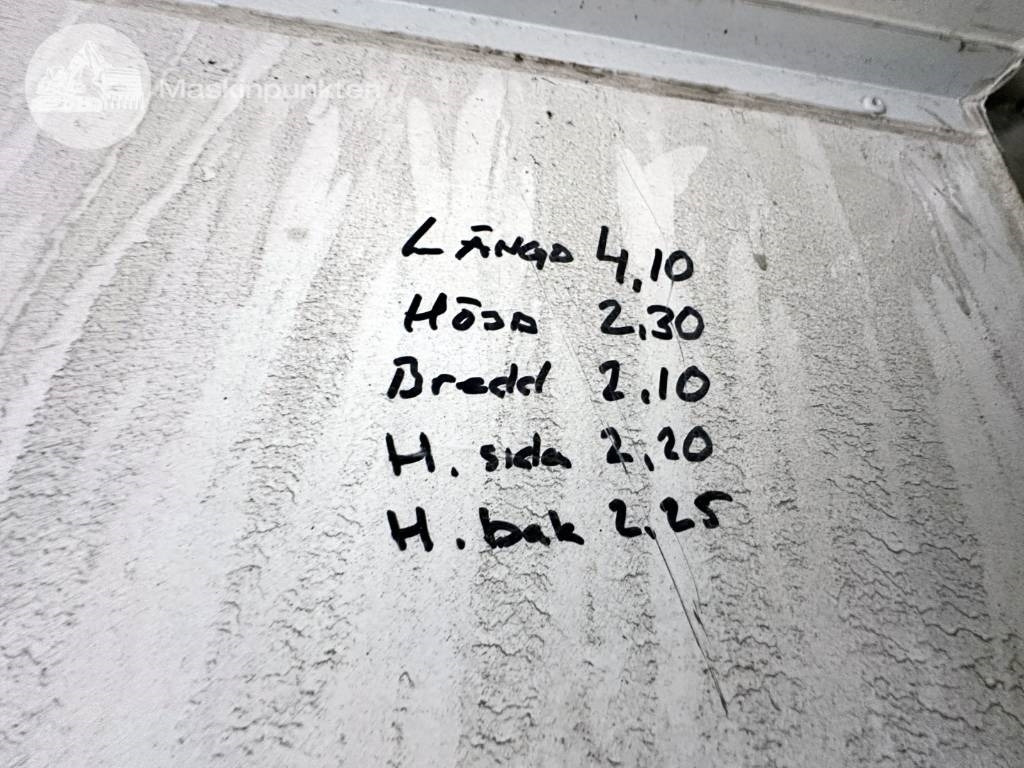 Maskinpunkten
LÄNGD 4,10
HÖJD 2,30
Bredd 2,10
H. sida 2,20
H. bak 2,25